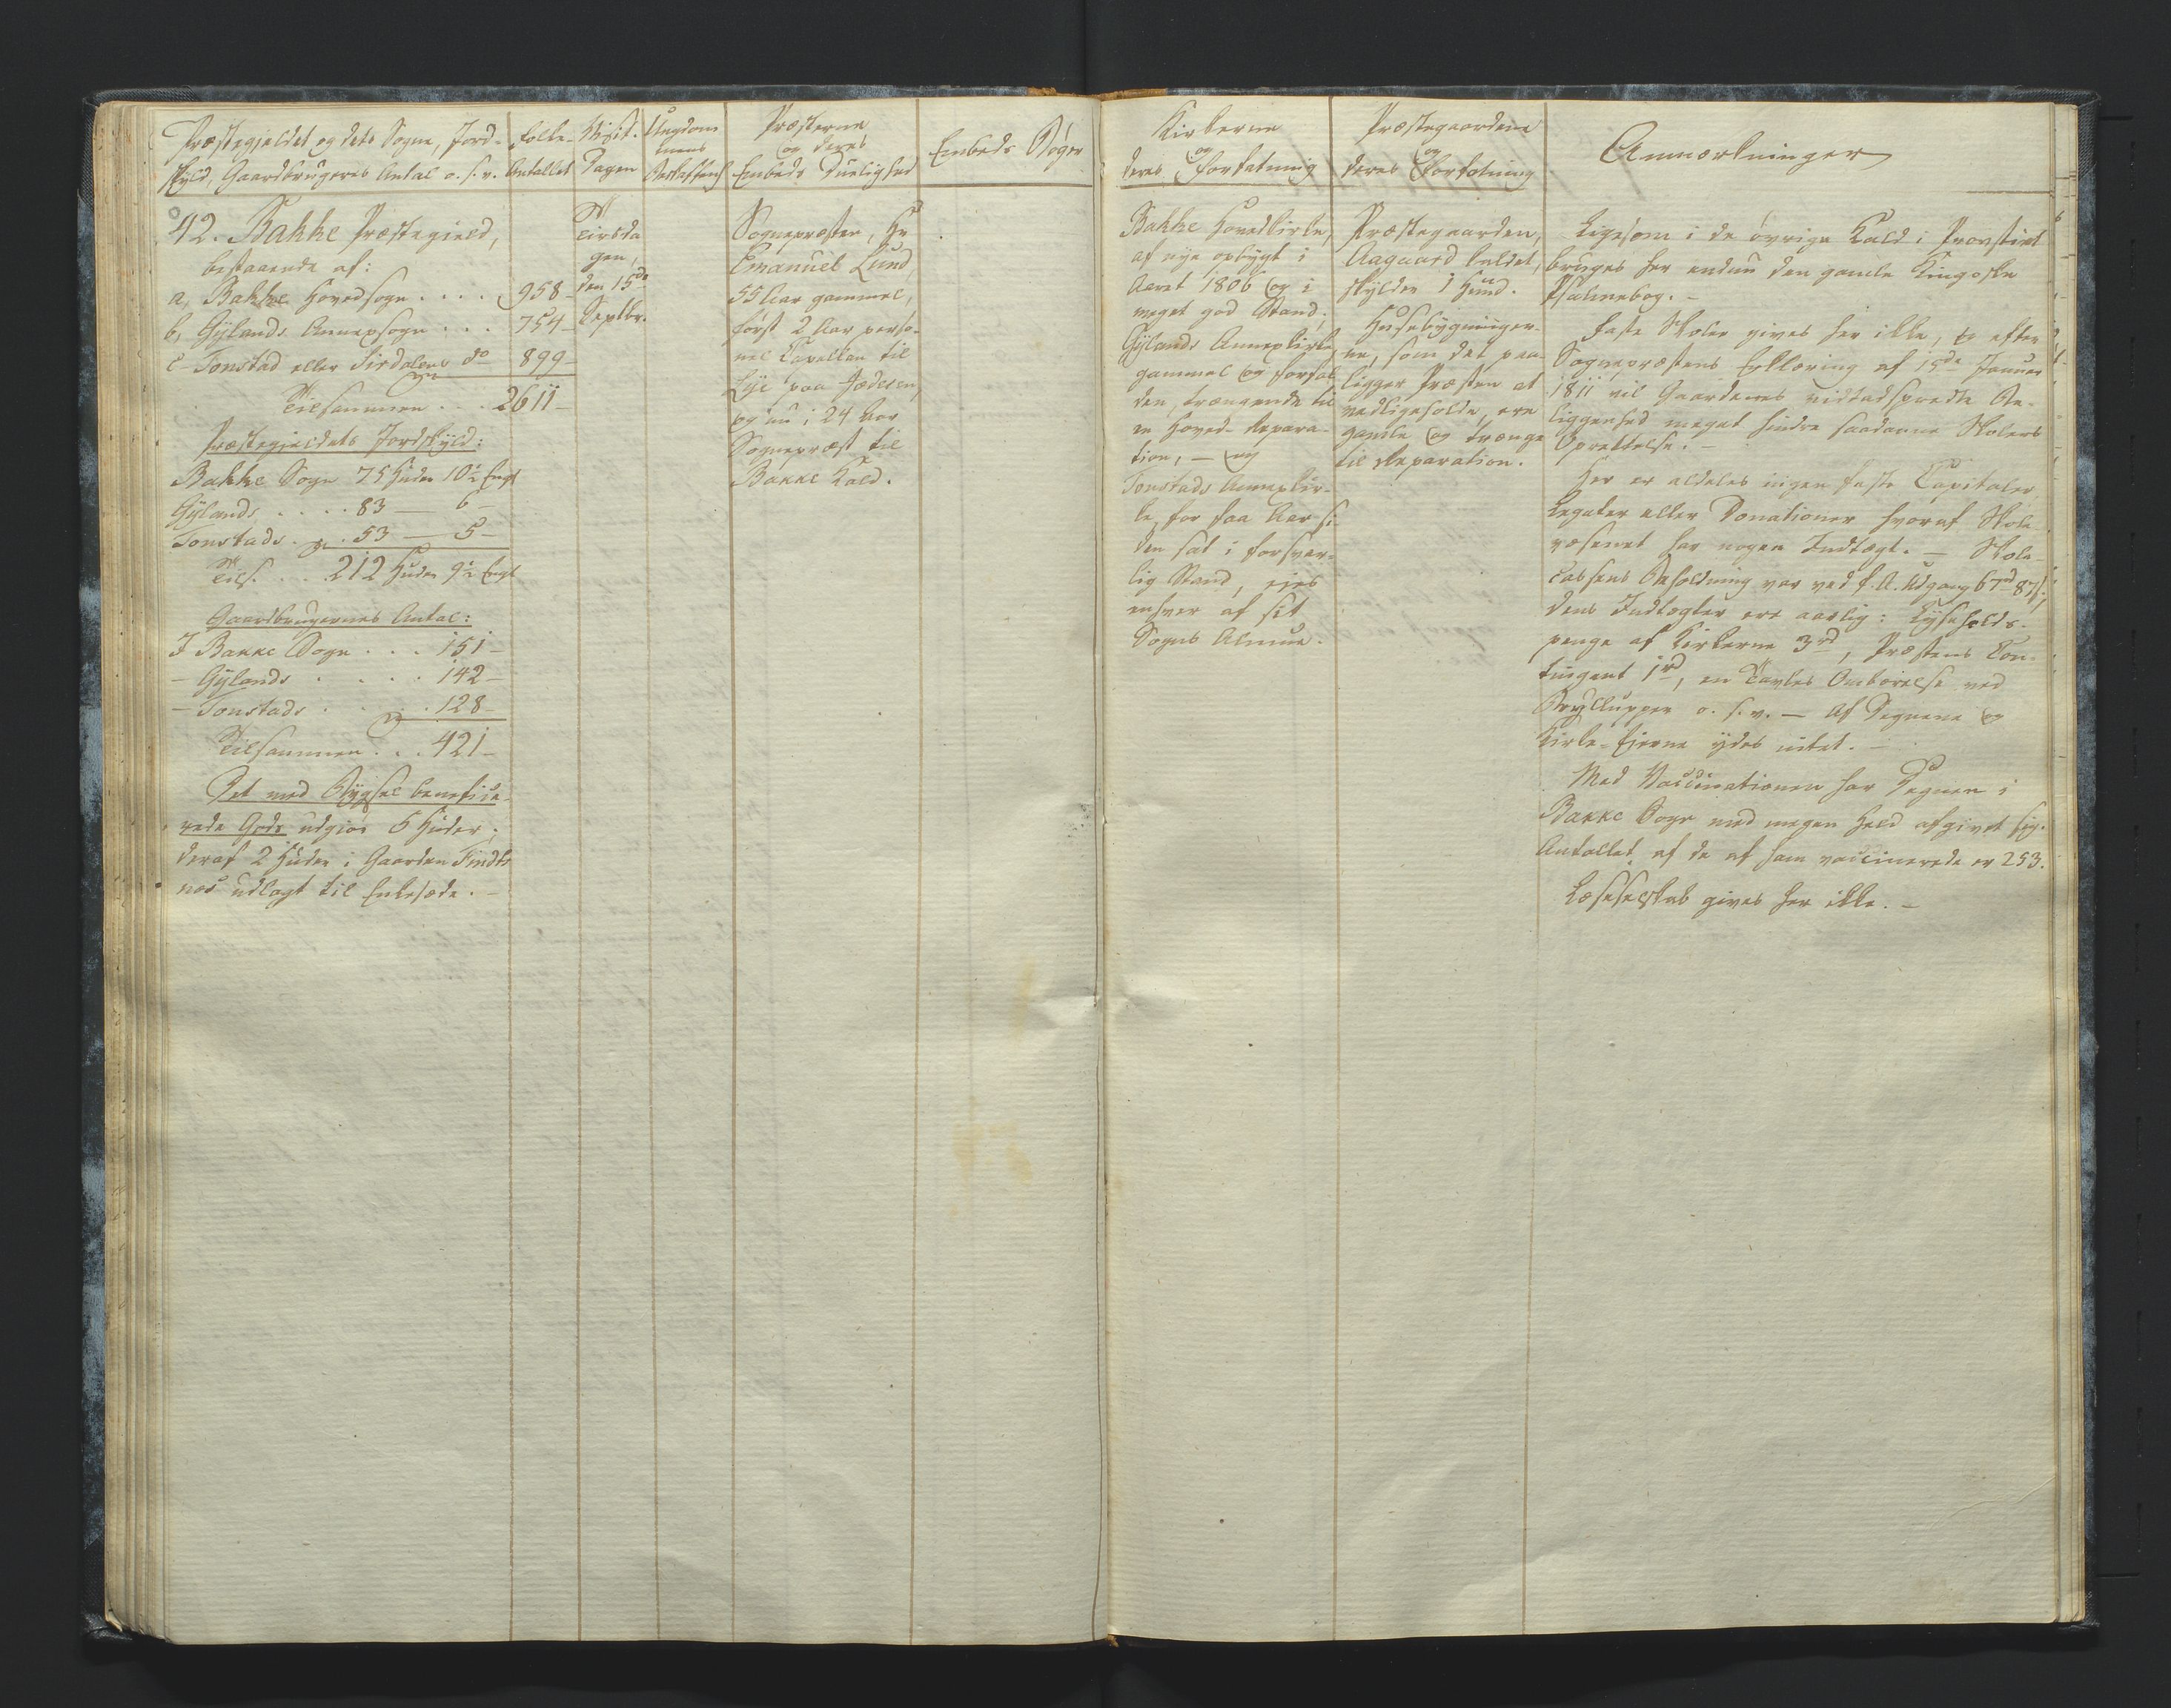 Præstegjeldet og dets Sogne, Jord-
skyld, Gaardbrugeres Antal o. s. v.
Folke-
Antallet
Visit.
Dagen
Ungdom
mens
Præsterne
og deres
Embeds Duelighed
Embeds Bøger
42. Bakke Præstegield,
bestaaende af:
a, Bakke Hovedsogn . . . . 958-
b, Gylands Annexsogn . . . 754-
c- Tonstad eller Sirdalens do 899-
Tilsammen . . . 2611-
Præstegieldets Jordskyld:
Bakke Sogn 75 Huder 10½ Engl
Gylands . . . . 83 — 6 -
Tonstads . . . 53 — 5 -
Tils. . . . 212 Huder 9½ Engl
Gaardbrugernes Antal:
I Bakke Sogn . . . 151-
- Gylands . . . . . 142-
- Tonstads . . . . . 128-
Tilsammen . . . 421-
Det med Bygsel benefice-
rede Gods udgiør 5 Huder;
deraf 2 Huder i Gaarden
nes udlagt til Enkesæde. -
Tirsda
gen,
den 15de
Septbr.
Sognepræsten, Hr
Emanuel Lund,
55 Aar gammel,
først 2 Aar perso-
nel Capellan til
Lye paa Jæderen,
og nu i 24 Aar
Sognepræst til
Bakke Kald.
Kirkerne
og
deres Forfatning
Præstegaardene
og
deres Forfatning
Anmærkninger
Bakke Hovedkirke,
af nye opbygt i
Aaret 1806 og i
meget god Stand;
Gylands Annexkirke,
gammel og forfal-
den, trængende til
en Hoved-Repara-
tion, — og
Tonstads Annexkir-
ke, for faa Aar si-
den sat i forsvar-
lig Stand, ejes
enhver af sit
Sogns Almue.
Præstegaarden,
Aagaard kaldet,
skylder 1 Huud.
Husebygninger-
ne, som det paa-
ligger Præsten at
vedligeholde, ere
gamle og trænge
til Reparation.
Ligesom i de øvrige Kald i Provstiet
bruges her endnu den gamle Kingoske
Psalmebog. -
Faste Skoler gives her ikke, og efter
Sognepræstens Erklæring af 15de Januar
1811 vil Gaardenes vidtadspredte Be-
liggenhed meget hindre saadanne Skolers
Oprettelse. -
Her er aldeles ingen faste Capitaler,
Legater eller Donationer hvoraf Skole-
væsenet har nogen Indtægt. — Skole-
cassens Beholdning var ved f. A. Udgang 67rd 87s;
dens Indtægter ere aarlig: Lyseholds-
penge af Kirkerne 3rd, Præstens Con-
tingent 1rd, en Tavles Ombærelse ved
Bryllupper o. s. v. — Af Degnene og
Kirke-Ejerne ydes intet. -
Med Vaccinationen har Degnen i
Bakke Sogn med megen Held afgivet sig.
Antallet af de af ham vaccinerede er 253.
Læseselskab gives her ikke. -